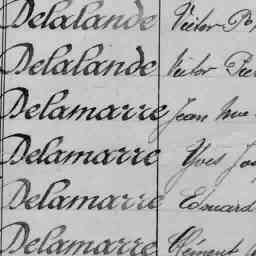 Delalande Victor
Delalande Victor
Delamarre Jean
Delamarre Yves
Delamarre Edouard
Delamarre Clément